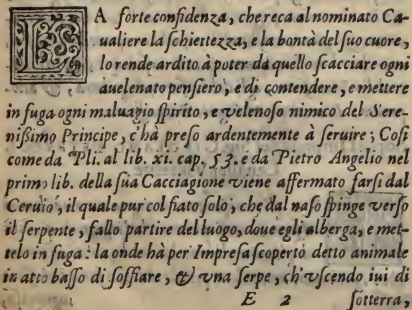 LA forte confidenza, che reca al nominato Ca-
ualiere la schiettezza, e la bontà del suo cuore,
lo rende ardito à poter da quello scacciare ogni
auelenato pensiero, e di contendere, e mettere
in fuga ogni maluagio spirito, e velenoso nimico del Sere-
nißimo Principe, c'hà preso ardentemente à seruire; Cosi
come da Pli. al lib. xi. cap. 53. e da Pietro Angelio nel
primo lib. della sua Cacciagione viene affermato farsi dal
Ceruio, il quale pur col fiato solo, che dal naso spinge verso
il serpente, fallo partire del luogo, doue egli alberga, e met-
telo in fuga: la onde hà per Impresa scoperto detto animale
in atto basso di soffiare, & vna serpe, ch'vscendo iui di
E 2 sotterra,